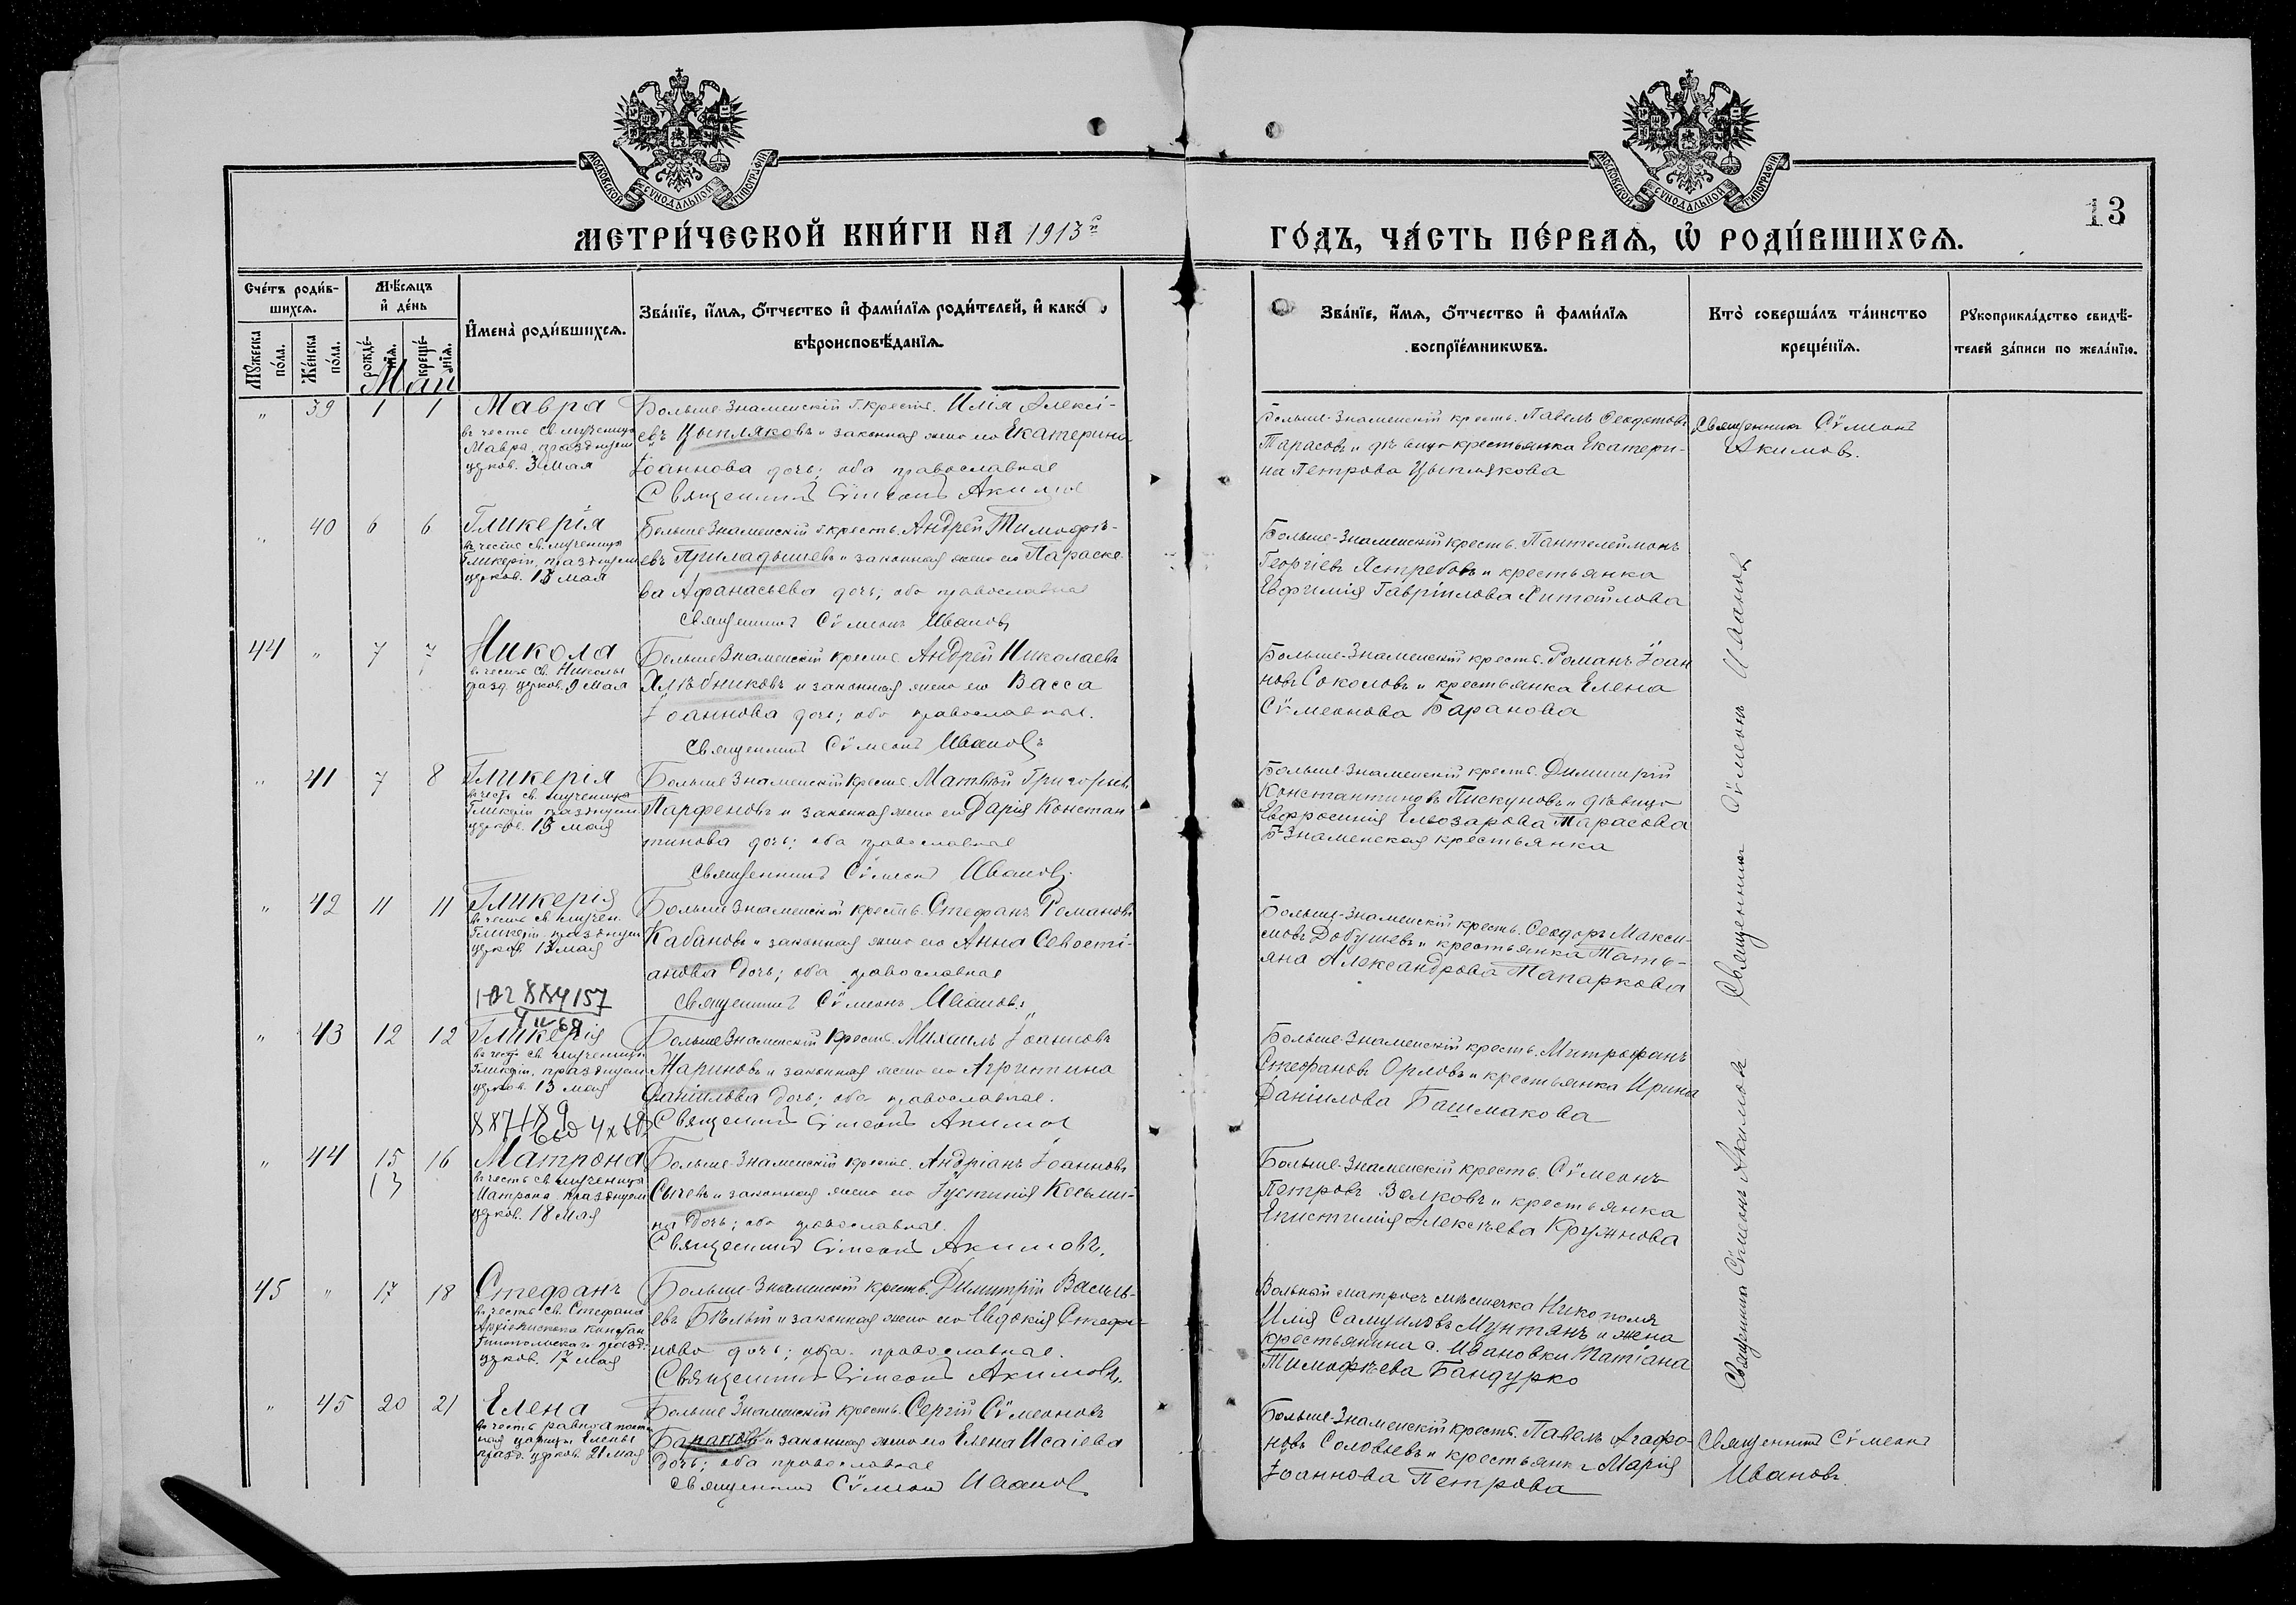 МОСКОВСКОЙ СѴНОДАЛЬНОЙ ТИПОГРАФІИ
МОСКОВСКОЙ СѴНОДАЛЬНОЙ ТИПОГРАФІИ
13
МЕТРИ́ЧЕСКОЙ КНИ́ГИ НА 1913й
ГО́ДЪ, ЧА́СТЬ ПЕ́РВАѦ, Ѡ РОДИ́ВШИХСѦ.
Сче́тъ роди́в-
шихсѧ.
Мѣ́сѧцъ
и҆ де́нь
Мꙋ́жеска по́ла.
Же́нска по́ла.
рожде́-нїѧ.
креще́-нїѧ.
И҆мена̀ роди́вшихсѧ.
Зва́нїе, и҆́мѧ, ѻ҆́тчество и҆ фами́лїѧ роди́телей, и҆ како́
вѣроисповѣ́данїѧ.
Зва́нїе, и҆́мѧ, ѻ҆́тчество и҆ фами́лїѧ
воспрїе́мникѡвъ.
Кто̀ соверша́лъ та́инство
креще́нїѧ.
Рꙋкоприкла́дство свидѣ́-
телей за́писи по жела́нїю.
Май
" 39 1 1 Мавра
въ честь св. мученицы
Мавра, празднуем
церков. 3 мая
Больше Знаменскій крестьян. Илія Алексі-
евъ Цыпляковъ и законная жена его Екатерина
Іоаннова дочь; оба православные
Священникъ Сѵмеонъ Акимов
Больше-Знаменскій кресть. Павелъ Ѳеодотовъ
Тарасовъ и дѣвица крестьянка Екатери-
на Петрова Цыплякова
Священникъ Сѵмеонъ
Акимовъ.
" 40 6 6 Гликерія
въ честь св. мученицы
Гликеріи, празднуем
церков. 13 мая
Больше Знаменскій кресть. Андрей Тимофѣ-
евъ Приладышевъ и законная жена его Параске-
ва Афанасьева дочь; оба православные
Священникъ Сѵмеонъ Ивановъ
Больше-Знаменскій кресть. Пантелеймонъ
Георгіевъ Ястребовъ и крестьянка
Евфимія Гавріилова
44 " 7 7 Никола
въ честь св. Николы
празд. церков. 9 мая
Больше Знаменскій кресть. Андрей Николаевъ
Хлѣбниковъ и законная жена его Васса
Іоаннова дочь; оба православные.
Священникъ Сѵмеонъ Ивановъ
Больше-Знаменскій кресть. Романъ Іоан
новъ Соколовъ и крестьянка Елена
Сѵмеонова Баранова
" 41 7 8 Гликерія
въ честь св. мученицы
Гликеріи празднуем
церков. 13 мая
Больше Знаменскій кресть. Матѳей Григорьев
Парфеновъ и законная жена его Дарія Констан
тинова дочь; оба православные
Священникъ Сѵмеонъ Ивановъ
Больше-Знаменскій кресть. Димитрій
Константиновъ Пискуновъ и дѣвица
Евфросинія Елеозарова Тарасова
Б-Знаменская крестьянка
" 42 11 11 Гликерія
въ честь св. мучен.
Гликеріи празднуем
церков. 13 мая
Больше Знаменскій кресть. Стефанъ Романовъ
Кабановъ и законная жена его Анна Севасті-
анова дочь; оба православные
Священникъ Сѵмеонъ Ивановъ
Больше-Знаменскій кресть. Ѳеодоръ Макси-
мовъ Добушевъ и крестьянка Тать-
яна Александрова Тапаркова
884157
" 43 12 12 Гликерія
въ честь св. мученицы
Гликеріи, празднуем
церков. 13 мая
Больше Знаменскій кресть. Михаилъ Іоанновъ
Мариновъ и законная жена его Агрипина
Даніилова дочь; оба православные.
Священникъ Сѵмеонъ Акимов
Больше-Знаменскій кресть. Митрофанъ
Стефановъ Орловъ и крестьянка Ирина
Даніилова Башмакова
" 44 15 16 Матрона
13
въ честь св. мученицы
Матрона, празднуем
церков. 18 мая
Больше-Знаменскій кресть. Андріанъ Іоанновъ
Сычевъ и законная жена его Іустинія Козьми-
на дочь; оба православные.
Священникъ Сѵмеонъ Акимовъ.
Больше-Знаменскій кресть. Сѵмеонъ
Петровъ Волковъ и крестьянка
Епистимія Алексѣева Кружнова
45 " 17 18 Стефанъ
въ честь св. Стефана
Архіепископа Констан
тинопольскаго празд.
церков. 17 мая
Больше-Знаменскій кресть. Димитрій Василь-
евъ Бѣлый и законная жена его Евдокія Стефа-
нова дочь; оба православные.
Священникъ Сѵмеонъ Акимовъ.
Вольный матросъ мѣстечка Никополя
Илія Самуиловъ Мунтянъ и жена
крестьянина с. Ивановки Татіана
Тимофѣева Бандурко
" 45 20 21 Елена
въ честь равноапостоль
ная царицы Елены
празд. церков. 21 мая
Больше Знаменскій кресть. Сергій Сѵмеоновъ
Барановъ и законная жена его Елена Исаіева
дочь; оба православные
Священникъ Сѵмеонъ Ивановъ
Больше-Знаменскій кресть. Павелъ Агафо-
новъ Соловьевъ и крестьянка Марія
Іоаннова Петрова
Священникъ Сѵмеонъ
Ивановъ
Священникъ Сѵмеонъ Ивановъ
Священникъ Сѵмеонъ Акимов